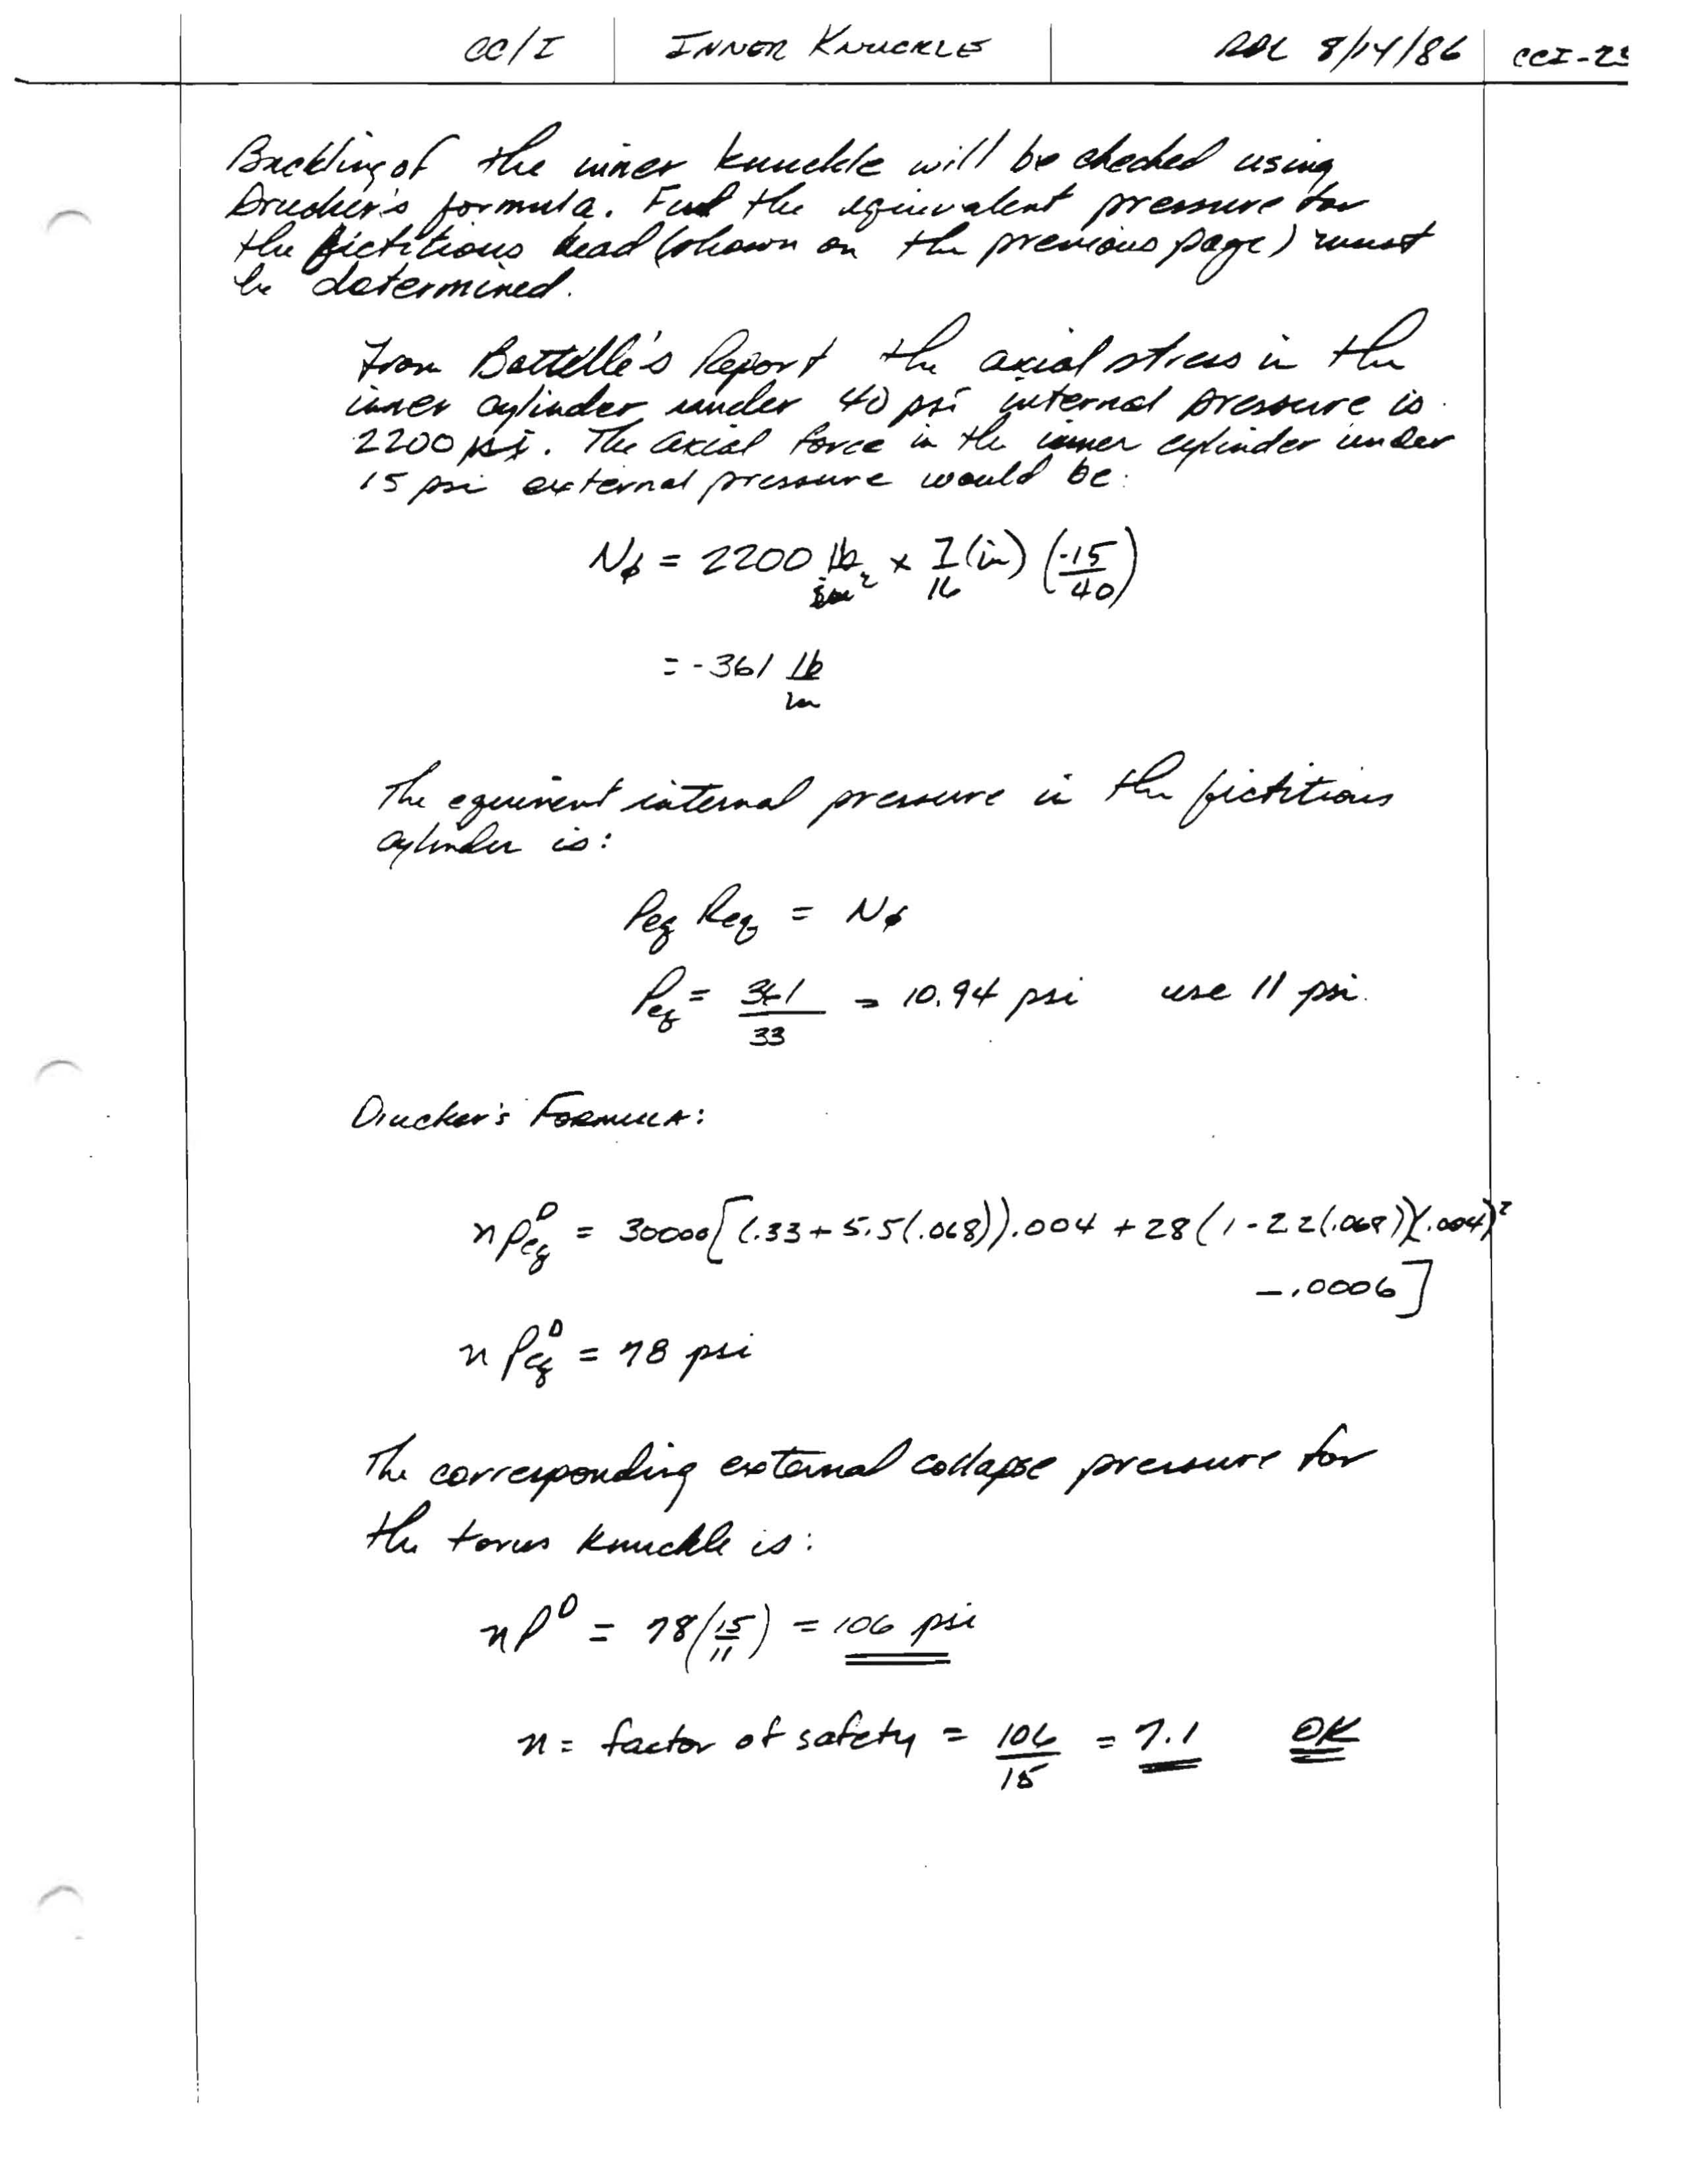 CC/I INNER KNUCKLE RDL 8/14/86 CCI-25
Buckling of the inner knuckle will be checked using
Drucker's formula. First the equivalent pressure for
the fictitious head (shown on the previous page) must
be determined.
From Battelle's Report the axial stress in the
inner cylinder under 40 psi internal pressure is
2200 psi. The axial force in the inner cylinder under
15 psi external pressure would be:
Nϕ = 2200 lb/in² x 7/16 (in) (-15/40)
= -361 lb/in
The equivent internal pressure in the fictitious
cylinder is:
Peq Req = Nϕ
Peq = 361/33 = 10.94 psi use 11 psi.
Drucker's FORMULA:
n Peq^D = 30000[(.33+5.5(.068)).004 + 28(1-2.2(.068))(.004)²
-.0006]
n Peq^D = 78 psi
The corresponding external collapse pressure for
the torus knuckle is:
n P^D = 78(15/11) = 106 psi
n = factor of safety = 106/15 = 7.1 OK